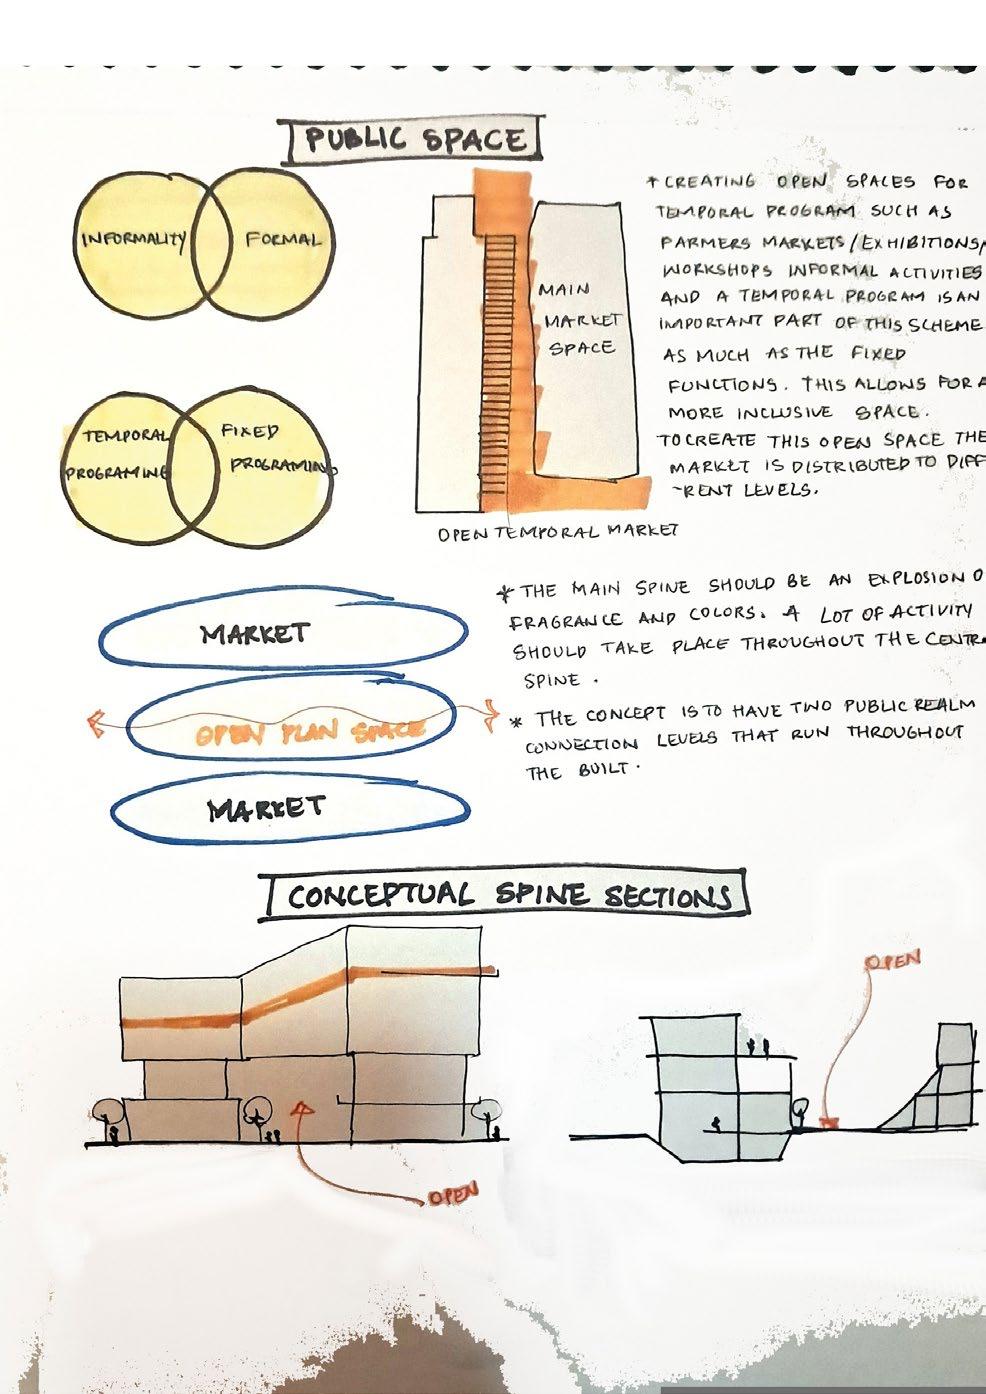 PUBLIC SPACE
INFORMALITY
FORMAL
TEMPORAL
PROGRAMING
FIXED
PROGRAMING
MAIN
MARKET
SPACE
OPEN TEMPORAL MARKET
* CREATING OPEN SPACES FOR
TEMPORAL PROGRAM SUCH AS
FARMERS MARKETS/EXHIBITIONS/
WORKSHOPS INFORMAL ACTIVITIES
AND A TEMPORAL PROGRAM IS AN
IMPORTANT PART OF THIS SCHEME
AS MUCH AS THE FIXED
FUNCTIONS. THIS ALLOWS FOR A
MORE INCLUSIVE SPACE.
TO CREATE THIS OPEN SPACE THE
MARKET IS DISTRIBUTED TO DIFF
~RENT LEVELS.
MARKET
OPEN PLAN SPACE
MARKET
* THE MAIN SPINE SHOULD BE AN EXPLOSION O
FRAGRANCE AND COLORS. A LOT OF ACTIVITY
SHOULD TAKE PLACE THROUGHOUT THE CENTR
SPINE.
* THE CONCEPT IS TO HAVE TWO PUBLIC REALM
CONNECTION LEVELS THAT RUN THROUGHOUT
THE BUILT.
CONCEPTUAL SPINE SECTIONS
OPEN
OPEN